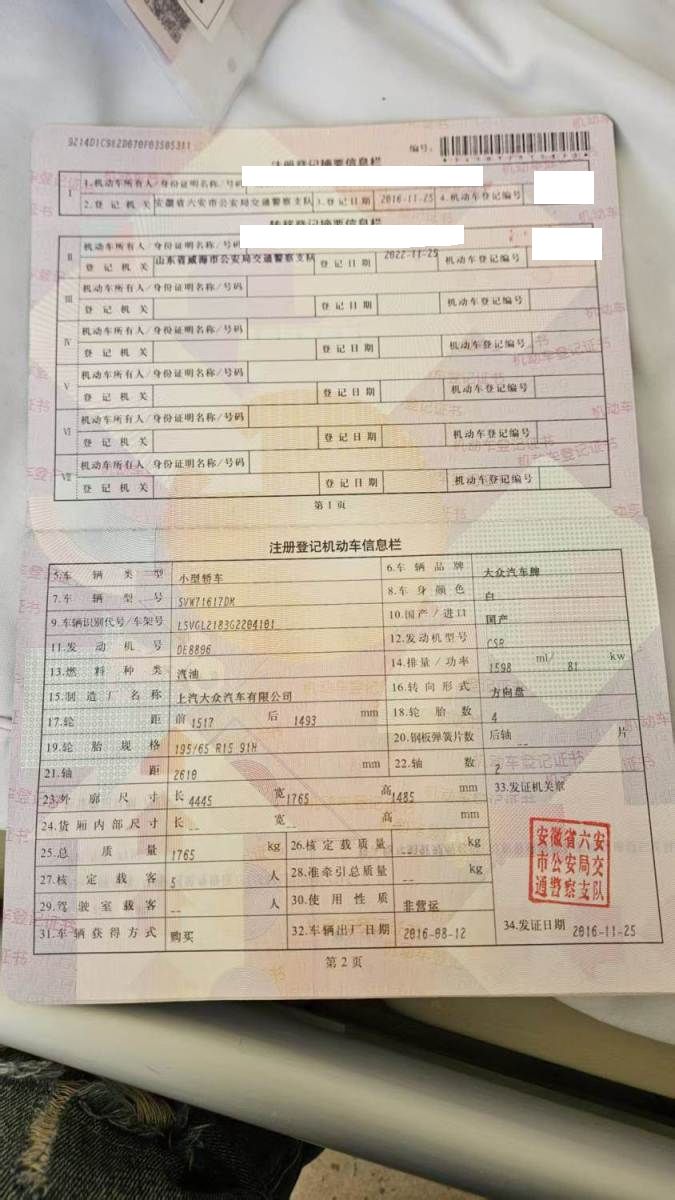 9214D1C912D070F03505311 编号:
注册登记摘要信息栏
I 1.机动车所有人/身份证明名称/号码
2.登记机关 安徽省六安市公安局交通警察支队 3.登记日期 2016-11-25 4.机动车登记编号
转移登记摘要信息栏
II 机动车所有人/身份证明名称/号码
登记机关 山东省威海市公安局交通警察支队 登记日期 2022-11-25 机动车登记编号
III 机动车所有人/身份证明名称/号码
登记机关 登记日期 机动车登记编号
IV 机动车所有人/身份证明名称/号码
登记机关 登记日期 机动车登记编号
V 机动车所有人/身份证明名称/号码
登记机关 登记日期 机动车登记编号
VI 机动车所有人/身份证明名称/号码
登记机关 登记日期 机动车登记编号
VII 机动车所有人/身份证明名称/号码
登记机关 登记日期 机动车登记编号
第1页
注册登记机动车信息栏
5.车辆类型 小型轿车 6.车辆品牌 大众汽车牌
7.车辆型号 SVW71617DM 8.车身颜色 白
9.车辆识别代号/车架号 LSVGL2183G2204101 10.国产/进口 国产
11.发动机号 DE8806 12.发动机型号 CSR
13.燃料种类 汽油 14.排量/功率 1598 ml/ 81 kw
15.制造厂名称 上汽大众汽车有限公司 16.转向形式 方向盘
17.轮距 前 1517 后 1493 mm 18.轮胎数 4
19.轮胎规格 195/65 R15 91H 20.钢板弹簧片数 后轴 -- 片
21.轴距 2610 mm 22.轴数 2
23.外廓尺寸 长 4445 宽 1765 高 1485 mm 33.发证机关章
24.货厢内部尺寸 长 -- 宽 -- 高 -- mm
25.总质量 1765 kg 26.核定载质量 -- kg
27.核定载客 5 人 28.准牵引总质量 -- kg
29.驾驶室载客 -- 人 30.使用性质 非营运
安徽省六安
市公安局交
通警察支队
31.车辆获得方式 购买 32.车辆出厂日期 2016-08-12 34.发证日期 2016-11-25
第2页